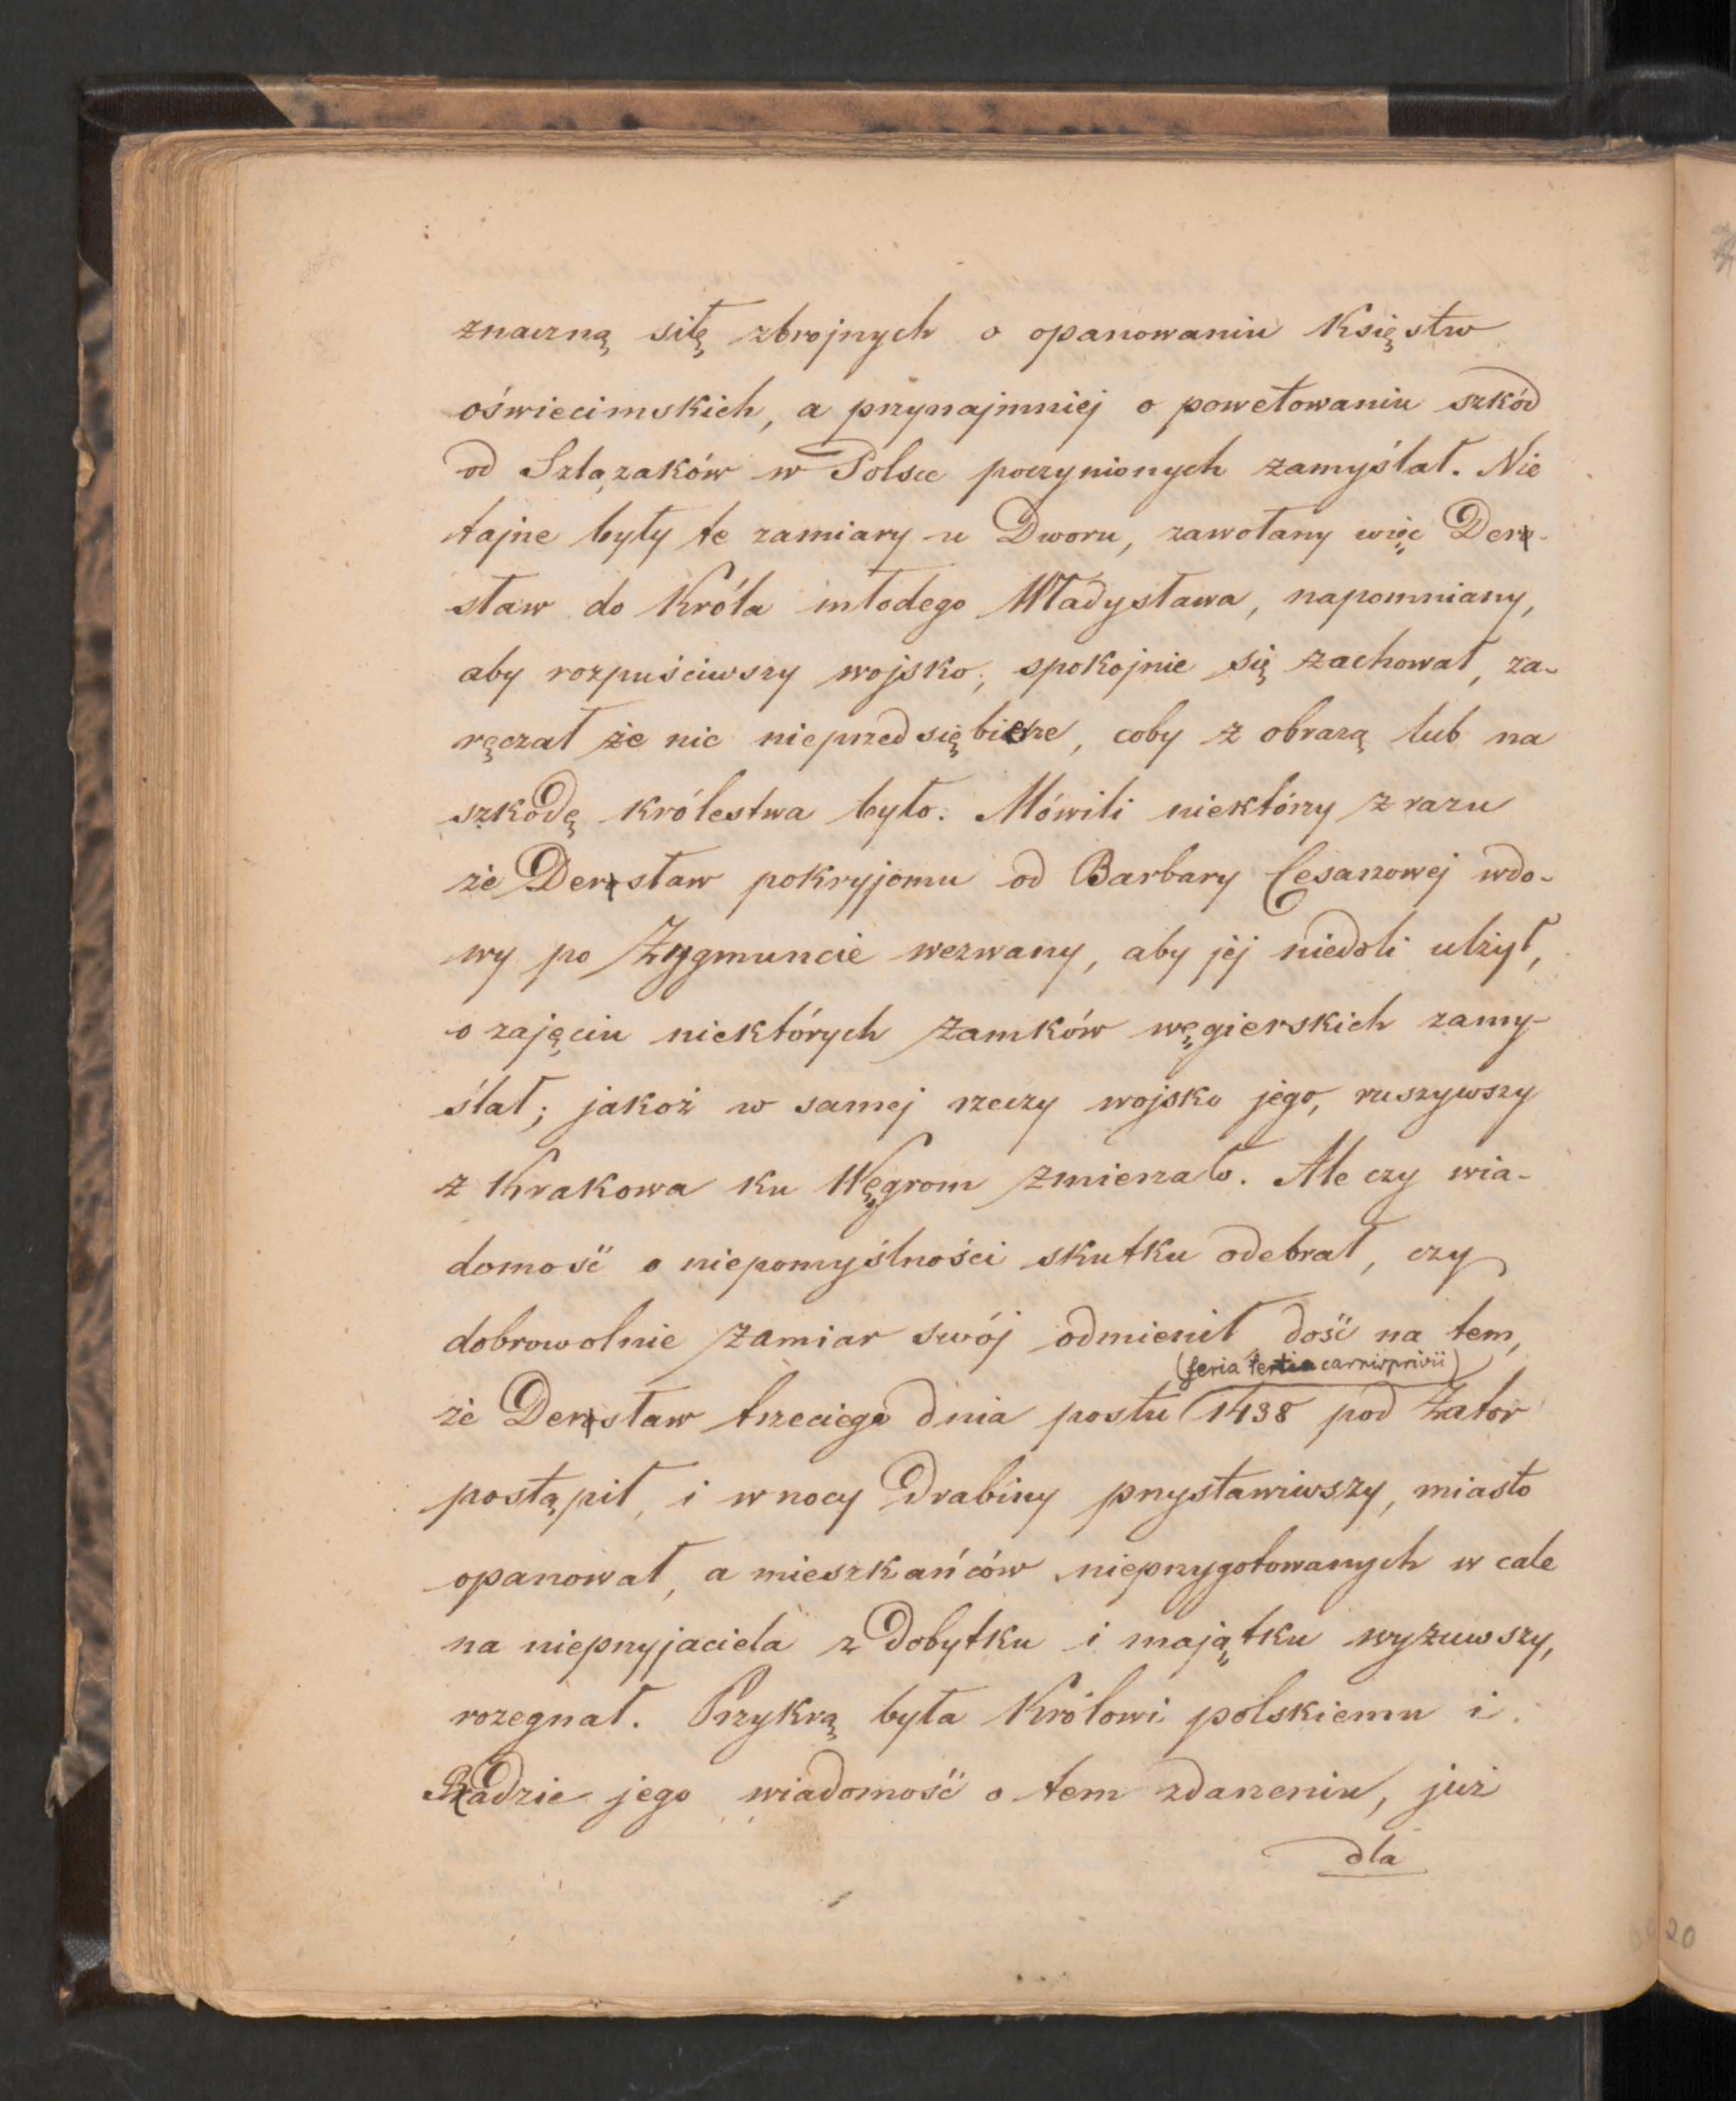 znaczną siłę zbrojnych o opanowaniu Księstw
oświecimskich, a przynajmniej o powetowaniu szkód
od Szlązaków w Polsce poczynionych zamyślał. Nie
tajne były te zamiary u Dworu, zawołany więc Derz-
sław do Króla młodego Władysława, napomniany,
aby rozpuściwszy wojsko, spokojnie się zachował, za-
ręczał że nic nieprzedsiębierze, coby z obrazą lub na
szkodę królestwa było. Mówili niektórzy zrazu
że Derzsław pokryjomu od Barbary Cesarzowej wdo-
wy po Zygmuncie wezwany, aby jej niedoli ulżył,
o zajęciu niektórych zamków węgierskich zamy-
ślał; jakoż w samej rzeczy wojsko jego, ruszywszy
z Krakowa ku Węgrom zmierzało. Ale czy wia-
domość o niepomyślności skutku odebrał, czy
dobrowolnie zamiar swój odmienił dość na tem,
(feria tertia carnisprivii)
że Derzsław trzeciego dnia postu 1438 pod Zator
postąpił, i w nocy drabiny przystawiwszy, miasto
opanował, a mieszkańców nieprzygotowanych w cale
na nieprzyjaciela z dobytku i majątku wyzuwszy,
rozegnał. Przykrą była Królowi polskiemu i
Radzie jego wiadomość o tem zdarzeniu, już
dla
20